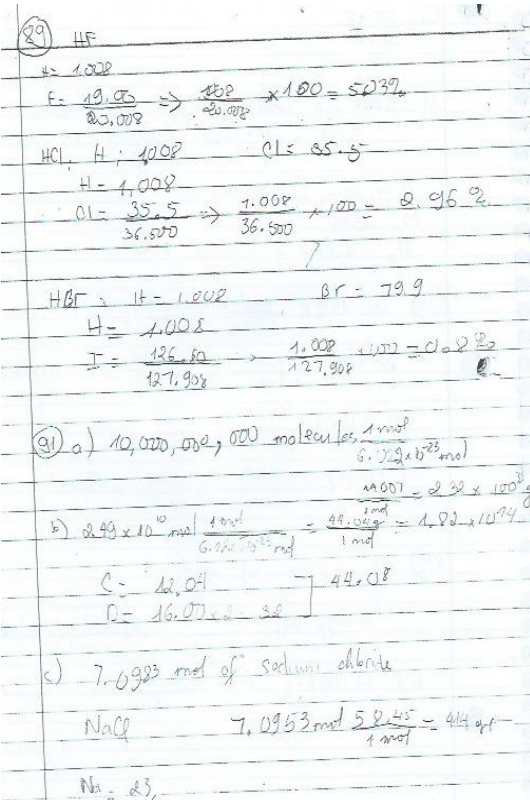 89 HF
H = 1.008
F = 19.00/20.008 => 1.008/20.008 × 100 = 5.03%
HCl: H: 1.008 Cl = 35.5
H = 1.008
Cl = 35.5/36.500 => 1.008/36.500 × 100 = 2.96%
HBr: H = 1.008 Br = 79.9
H = 1.008
I = 126.90/127.908 1.008/127.908 × 100 = 0.8%
91) a) 10,000,000,000 molecules 1 mol/6.022×10^-23 mol
/1 mol = 2.32 ×
b) 2.49×10^10 mol 1 mol/6.022×10^-23 mol = 44.04g/1 mol = 1.82×10^-14
C = 12.04 ] 44.08
O = 16.00×2 = 32
c) 7.0983 mol of sodium chlorite
NaCl 7.0953 mol 58.45/1 mol = 414 g
Na = 23,